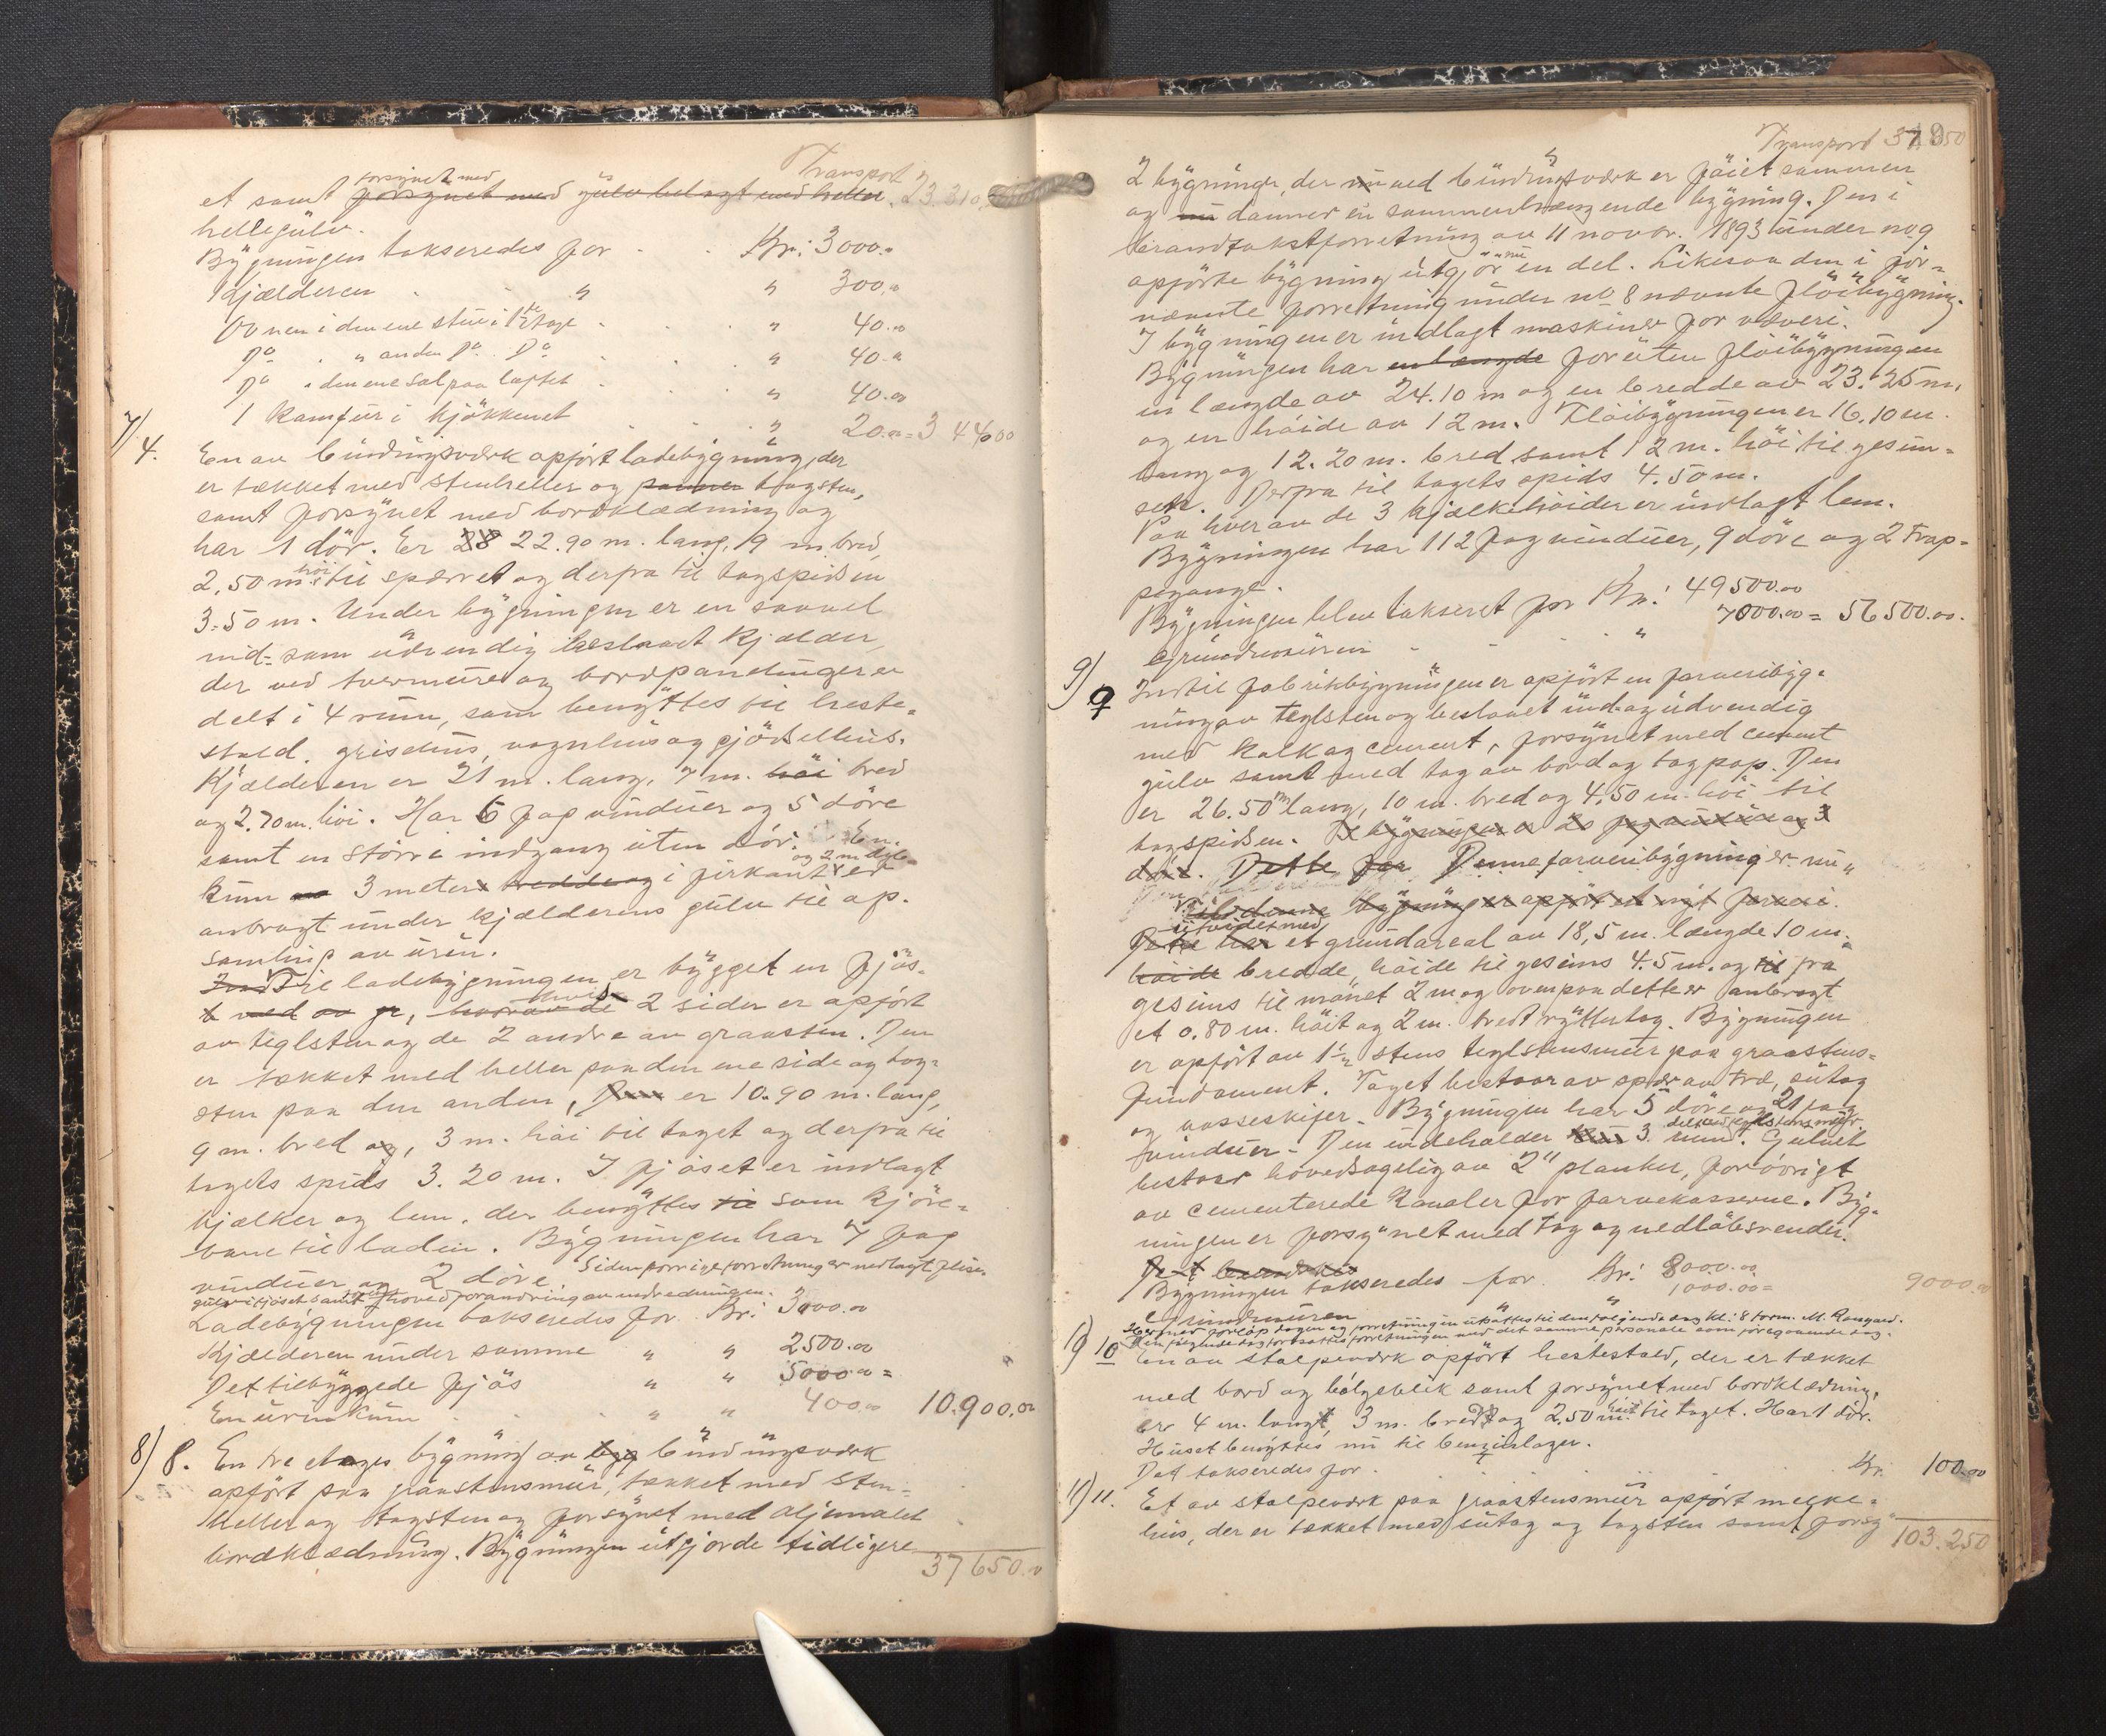 Transport
forsynet med
et samt forsynet med gulv belagt med heller. 23.310
hellegulv.
Bygningen takseredes for Kr: 3000.-
Kjælderen " " 300.-
Ovnen i den ene stue i 1ste etage " 40.00
Do " anden Do Do " 40.-
Do i den ene sal paa loftet " 40.00
1 kamfur i kjøkkenet " 20.00 = 3440.00
7) 4. En av bindingsværk opført ladebygning, der
er tækket med stenheller og tagsten,
samt forsynet med bordklædning og
har 1 dör. Er 28 22.90 m. lang, 19 m. bred,
2,50 m. høi til spærret og derfra til tagspidsen
3.50 m. Under bygningen er en saavel
ind- som udvendig beslaaet kjælder,
der ved tvermure og bordpanelinger er
delt i 4 rum, som benyttes til heste-
stald, grisehus, vognhus og gjödselhus.
Kjælderen er 21 m. lang, 7 m. höi bred
og 2.70 m. höi. Har 6 fag vinduer og 5 döre
samt en större indgang uten dör. En
og 2 m dyb
kum 3 meter bredde og i firkant er
anbragt under kjælderens gulv til op-
samling av urin.
Ind Til ladebygningen er bygget en fjös-
hvis
2 sider er opfört
av teglsten og de 2 andre av graasten. Den
er tækket med heller paa den ene side og tag-
sten paa den anden, Den er 10.90 m. lang,
9 m. bred og, 3 m. höi til taget og derfra til
tagets spids 3.20 m. I fjöset er indlagt
bjælker og lem, der benyttes til som kjöre-
bane til laden. Bygningen har 7 fag
vinduer og 2 döre. Siden forrige forretning er nedlagt flise-
gulv i fjöset samt foretaget forandring av indredningen.
Ladebygningen takseredes for Kr: 3000.00
Kjælderen under samme " " 2500.00
Det tilbyggede fjös " " 5000.00 =
En urinkum " " 400.00 10.900.00
8) 8. En tre etages bygning av byg bindingsværk
opfört paa graastensmur, tækket med sten-
heller og tagsten og forsynet med oljemalet
bordklædning. Bygningen utgjorde tidligere
37650.00
Transport 37650
2 bygninger, der nu ved bindingsværk er föiet sammen
og nu danner en sammenhængende bygning. Den i
brandtakstforretning av 11 novbr. 1893 under no 9
opförte bygning utgjör nu en del. Likesaa den i för-
nævnte forretning under no 8 nævnte flöibygning.
I bygningen er indlagt maskiner for væveri.
Bygningen har en længde foruten flöibygningen
en længde av 24.10 m og en bredde av 23.25 m.
og en höide av 12 m. Flöibygningen er 16.10 m.
lang og 12.20 m. bred samt 12 m. höi til gesim-
sen. Derfra til tagets spids 4.50 m.
Paa hver av de 3 bjælkehöider er indlagt lem.
Bygningen har 112 fag vinduer, 9 döre og 2 trap-
pegange.
Bygningen blev takseret for Kr: 49500.00
Grundmuren " 7000.00 = 56500.00.
9) 9 Indtil fabrikbygningen er opfört en farveribyg-
ning av teglsten og beslaaet ind- og udvendig
med kalk og cement, forsynet med cement
gulv samt med tag av bord og tagpap. Den
er 26.50 m lang, 10 m. bred og 4,50 m. höi til
tagspidsen. I bygningen er 20 fag vinduer og 3
döre. Dette far Denne farveribygning er nu
bygningen opfört et nyt farveri.
utvidet med
Dette har et grundareal av 18,5 m. længde 10 m.
höide bredde, höide til gesims 4.5 m. og til fra
gesims til mönet 2 m og ovenpaa dette er anbragt
et 0.80 m. höit og 2 m. bredt ryttertag. Bygningen
er opfört av 1½ stens teglstensmur paa graastens-
fundament. Taget bestaar av spær av træ, sutag
og vosseskifer. Bygningen har 5 döre og 21 fag
delt ved teglstensmur.
vinduer. Den indeholder 3 rum. Gulvet
bestaar hovedsagelig av 2" planker, forövrigt
av cementerede kanaler for farvekasserne. Byg-
ningen er forsynet med tag og nedlöbsrender.
Bygningen takseredes for Kr: 8000.00
Grundmuren 1000.00 = 9000.00
Hermed forløp dagen og forretningen utsattes til den følgende dag kl. 8 form. M. Ramgard.
Den følgende dag fortsattes forretningen med det samme personale som foregaaende dag.
10) 10 En av stolpeverk opfört hestestald, der er tækket
med bord og bölgeblik samt forsynet med bordklædning,
er 4 m. langt, 3 m. bredt og 2,50 m. höit til taget. Har 1 dör.
Huset benyttes nu til benzinlager.
Det takseredes for Kr. 100.00
11) 11. Et av stolpeverk paa graastensmur opfört melke-
hus, der er tækket med sutag og tagsten samt forsy-
103.250